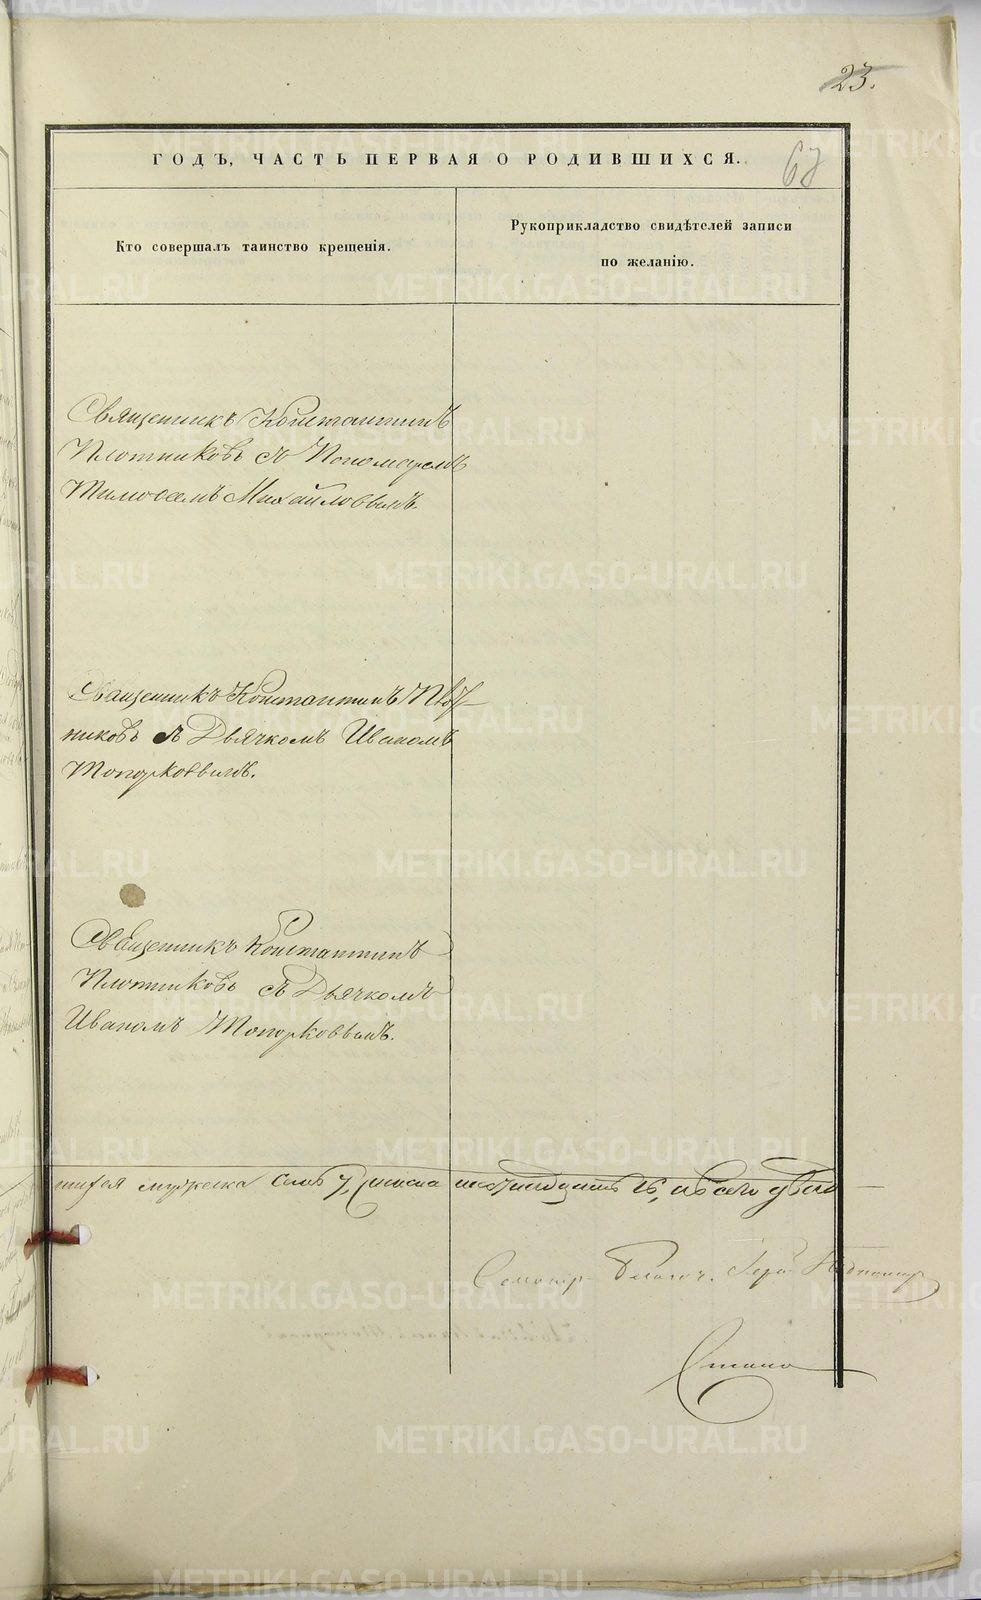 23.
67
ГОДЪ, ЧАСТЬ ПЕРВАЯ О РОДИВШИХСЯ.
Кто совершалъ таинство крещенія.
Рукоприкладство свидѣтелей записи
по желанію.
Священникъ Константинъ
Плотниковъ съ Пономаремъ
Тимофеемъ Михайловымъ.
Священникъ Константинъ Плот-
никовъ съ Дьячкомъ Иваномъ
Топорковымъ.
Священникъ Константинъ
Плотниковъ съ Дьячкомъ
Иваномъ Топорковымъ.
мужеска 7, шестнадцать 16, всего
METRIKI.GASO-URAL.RU